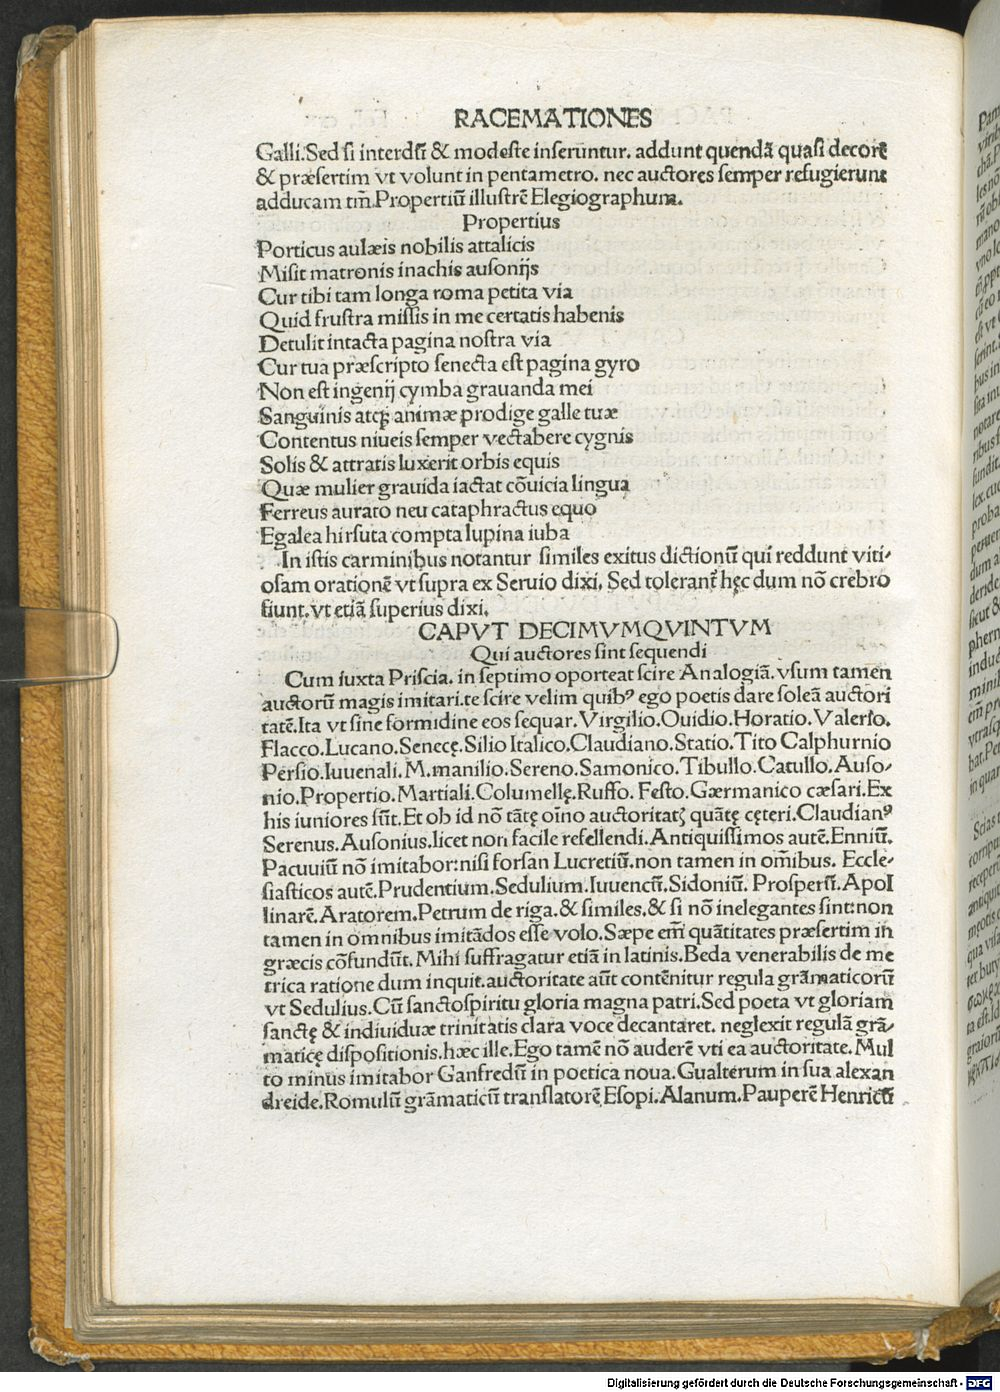 RACEMATIONES
Galli.Sed si interdũ & modeste inseruntur. addunt quendã quasi decorẽ
& præsertim vt volunt in pentametro. nec auctores semper refugierunt
adducam tm̃.Propertiũ illustrẽ Elegiographum.
Propertius
Porticus aulæis nobilis attalicis
Misit matronis inachis ausonijs
Cur tibi tam longa roma petita via
Quid frustra missis in me certatis habenis
Detulit intacta pagina nostra via
Cur tua præscripto senecta est pagina gyro
Non est ingenij cymba grauanda mei
Sanguinis atqꝫ animæ prodige galle tuæ
Contentus niueis semper vectabere cygnis
Solis & attratis luxerit orbis equis
Quæ mulier grauida iactat cõuicia lingua
Ferreus aurato neu cataphractus equo
Egalea hirsuta compta lupina iuba
In istis carminibus notantur similes exitus dictionũ qui reddunt viti-
osam orationẽ vt supra ex Seruio dixi. Sed tolerant̃ hęc dum nõ crebro
fiunt. vt etiã superius dixi.
CAPVT DECIMVMQVINTVM
Qui auctores sint sequendi
Cum iuxta Priscia. in septimo oporteat scire Analogiã. vsum tamen
auctorũ magis imitari.te scire velim quibꝰ ego poetis dare soleã auctori
tatẽ.Ita vt sine formidine eos sequar. Virgilio.Ouidio.Horatio.Valerio.
Flacco.Lucano.Senecę.Silio Italico.Claudiano.Statio.Tito Calphurnio
Persio.Iuuenali.M.manilio.Sereno.Samonico.Tibullo.Catullo.Auso-
nio.Propertio.Martiali.Columellę.Ruffo. Festo.Gærmanico cæsari.Ex
his iuniores sũt.Et ob id nõ tãtę oĩno auctoritatꝭ quãtę cęteri.Claudianꝰ
Serenus. Ausonius.licet non facile refellendi.Antiquissimos autẽ.Enniũ.
Pacuuiũ nõ imitabor:nisi forsan Lucretiũ.non tamen in om̃ibus. Eccle-
siasticos autẽ.Prudentium.Sedulium.Iuuencũ.Sidoniũ. Prosperũ.Apol
linarẽ.Aratorem.Petrum de riga.& similes.& si nõ inelegantes sint:non
tamen in omnibus imitãdos esse volo.Sæpe em̃ quãtitates præsertim in
græcis cõfundũt. Mihi suffragatur etiã in latinis.Beda venerabilis de me
trica ratione dum inquit.auctoritate aũt contẽnitur regula grãmaticorũ
vt Sedulius. Cũ sanctospiritu gloria magna patri.Sed poeta vt gloriam
sanctę & indiuiduæ trinitatis clara voce decantaret. neglexit regulã grã-
maticę dispositionis.hæc ille.Ego tamẽ nõ auderẽ vti ea auctoritate. Mul
to minus imitabor Ganfredũ in poetica noua. Gualterum in sua alexan
dreide.Romulũ grãmaticũ translatorẽ Esopi. Alanum.Pauperẽ Henricũ
Digitalisierung gefördert durch die Deutsche Forschungsgemeinschaft - DFG